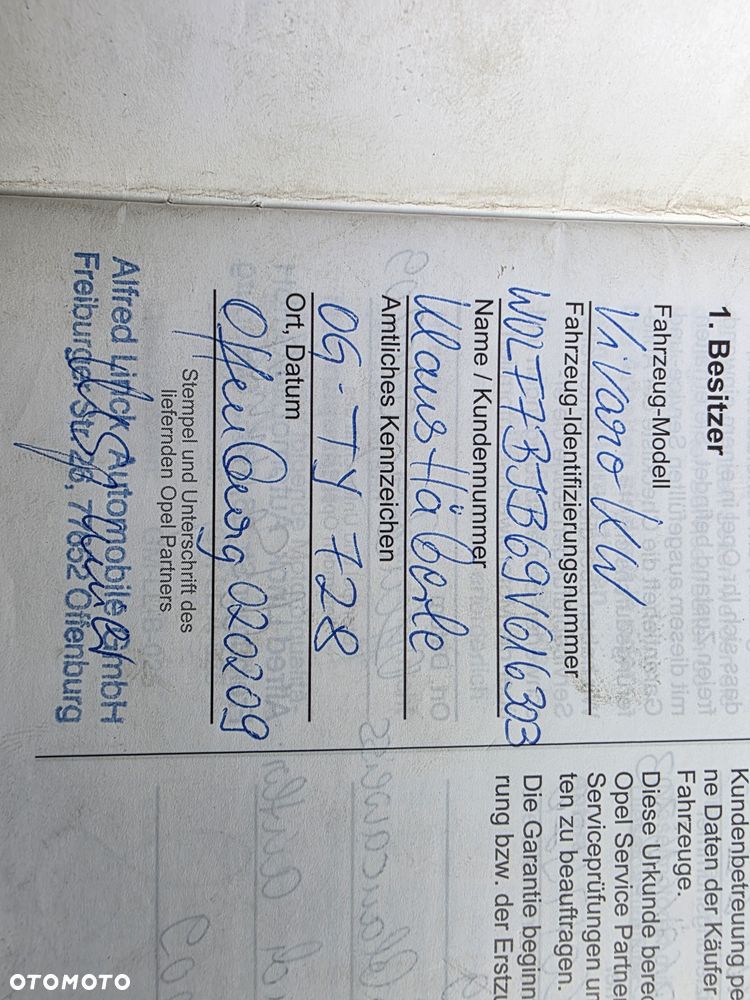 1. Besitzer
Vivaro KW
Fahrzeug-Modell
W0LF7BJB69V616303
Fahrzeug-Identifizierungsnummer
Klaus Häberle
Name / Kundennummer
OG-TY 728
Amtliches Kennzeichen
Offenburg 020209
Ort, Datum
Stempel und Unterschrift des
liefernden Opel Partners
Alfred Linck Automobile GmbH
Freiburger Str. 26, 77652 Offenburg
Kundenbetreuung pe
ne Daten der Käufer
Fahrzeuge.
Diese Urkunde bere
Opel Service Partne
Serviceprüfungen un
ten zu beauftragen.
Die Garantie beginn
rung bzw. der Erstzu
OTOMOTO